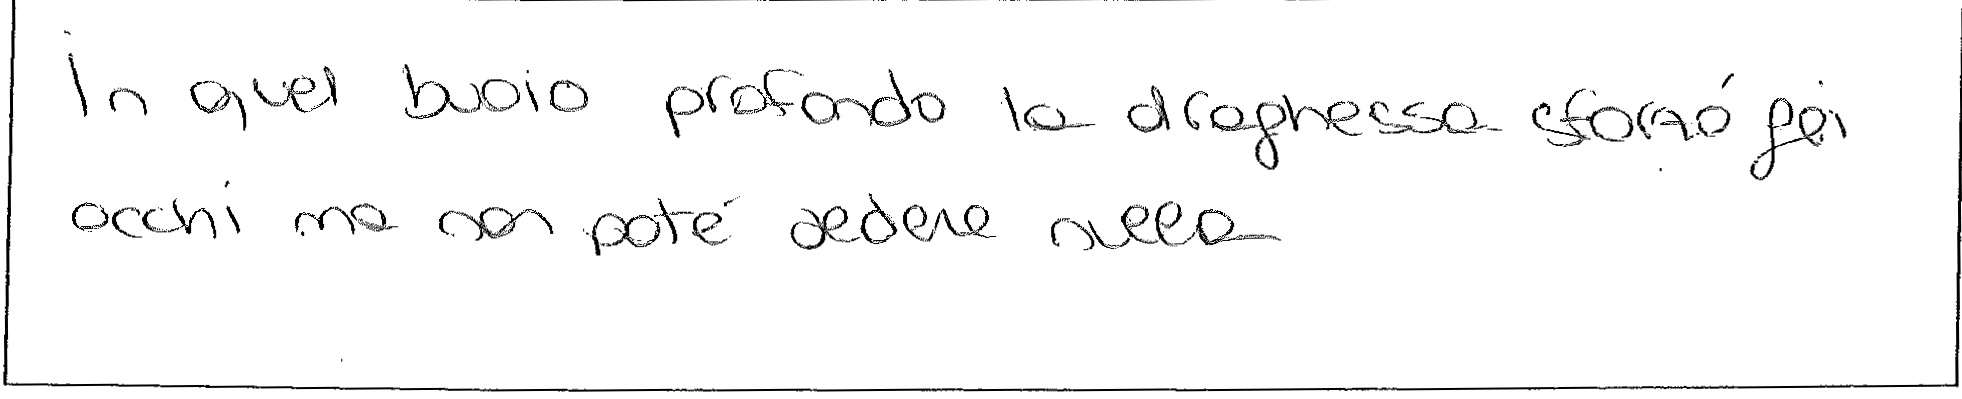 In quel buoio profondo la draghessa sforzó gli
occhi ma non poté vedere nulla